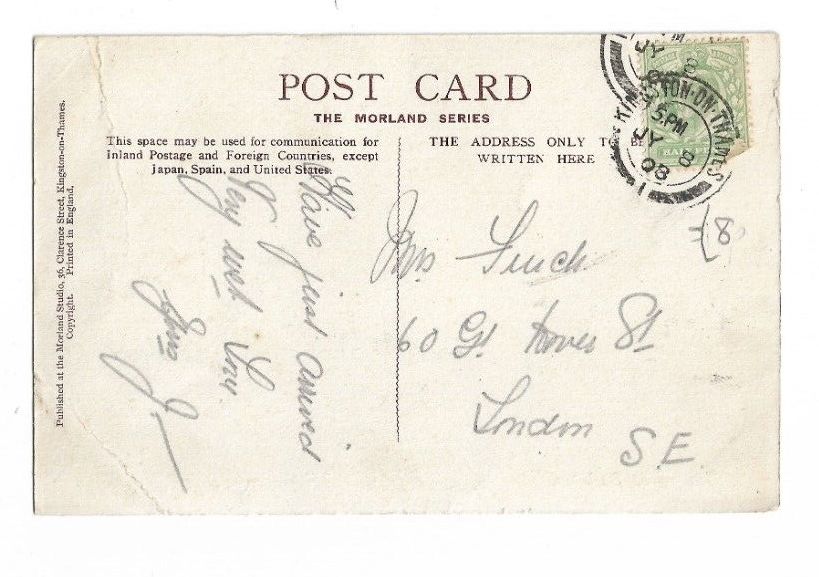 POST CARD
THE MORLAND SERIES
This space may be used for communication for
Inland Postage and Foreign Countries, except
Japan, Spain, and United States.
THE ADDRESS ONLY TO BE
WRITTEN HERE
Published at the Morland Studio, 36, Clarence Street, Kingston-on-Thames.
Copyright. Printed in England.
KINGSTON-ON-THAMES
5.PM
JY 8
08
1
Have just arrived
Very wet
J.
Mrs
60 Gt St
London
S.E.